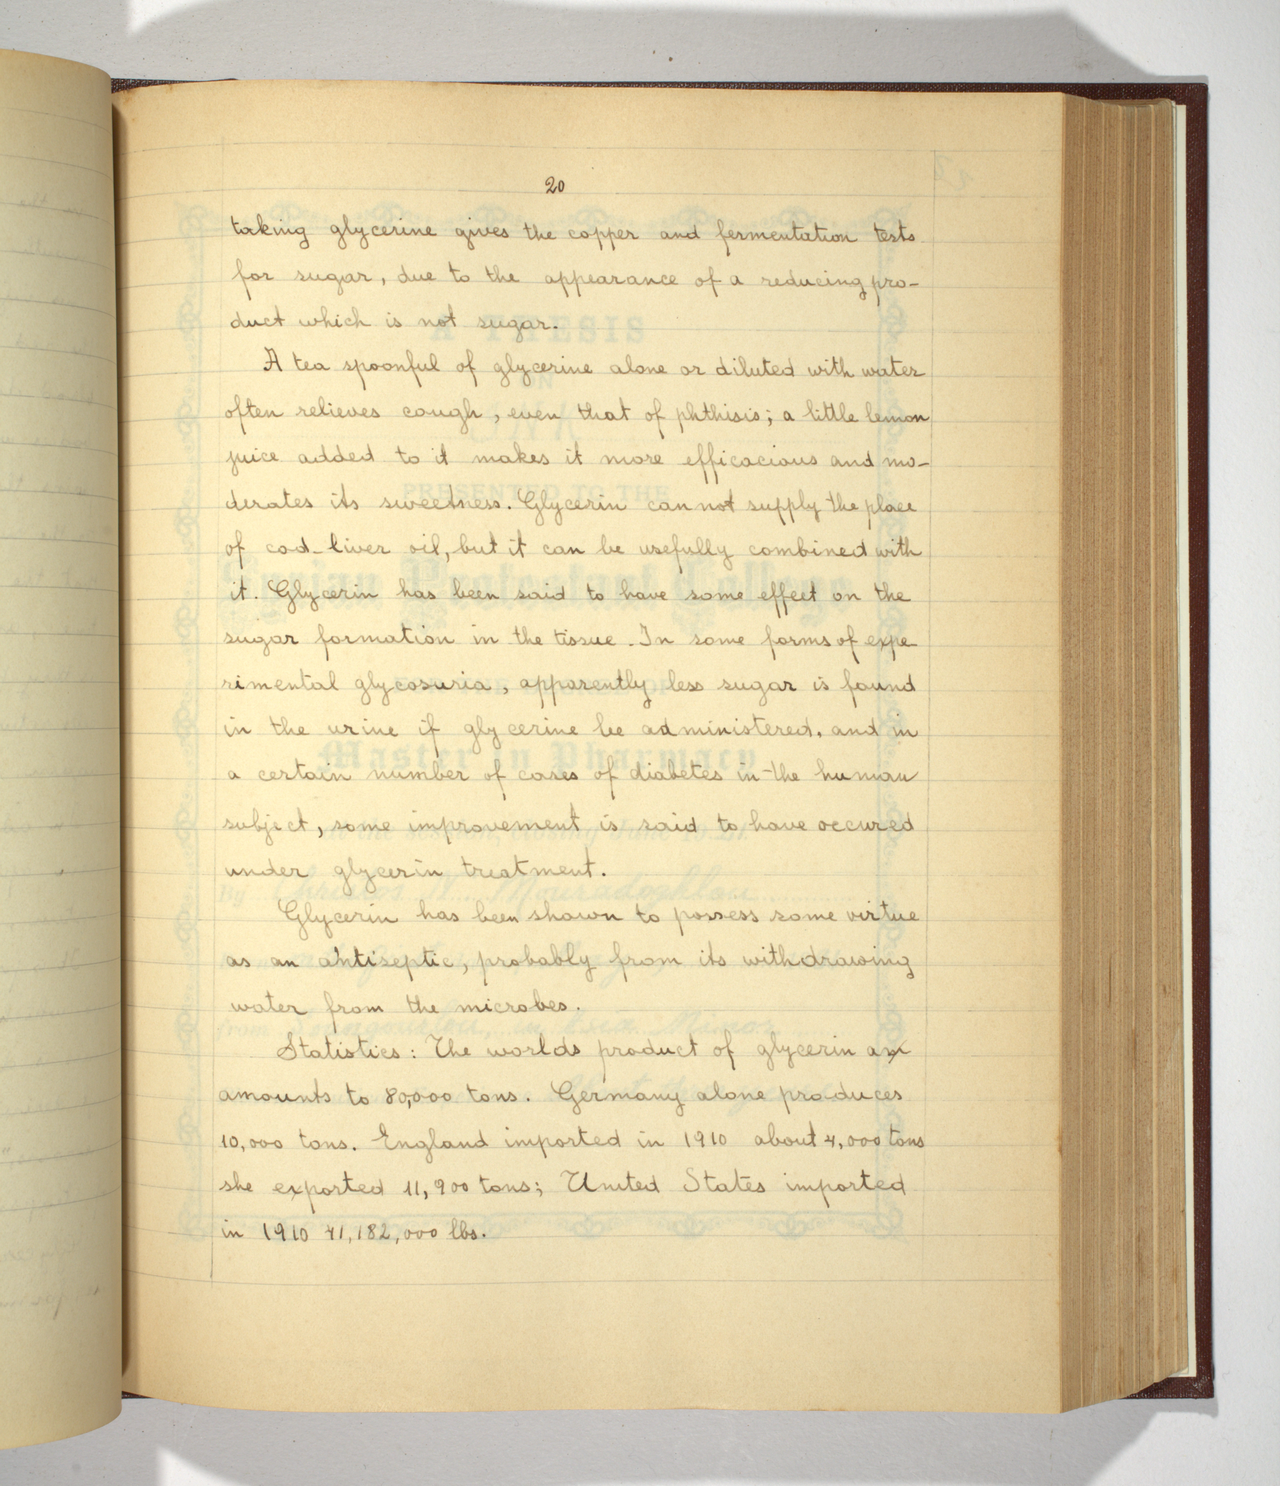 20
taking glycerine gives the copper and fermentation tests
for sugar, due to the appearance of a reducing pro-
duct which is not sugar.
A tea spoonful of glycerine alone or diluted with water
often relieves cough, even that of phthisis; a little lemon
juice added to it makes it more efficacious and mo-
derates its sweetness. Glycerin can not supply the place
of cod-liver oil, but it can be usefully combined with
it. Glycerin has been said to have some effect on the
sugar formation in the tissue. In some forms of expe
rimental glycosuria, apparently less sugar is found
in the urine if glycerine be administered, and in
a certain number of cases of diabetes in the human
subject, some improvement is said to have occured
under glycerin treatment.
Glycerin has been shown to possess some virtue
as an antiseptic, probably from its withdrawing
water from the microbes.
Statistics: The worlds product of glycerin
amounts to 80,000 tons. Germany alone produces
10,000 tons. England imported in 1910 about 4,000 tons
she exported 11,900 tons; United States imported
in 1910 41,182,000 lbs.
A THESIS
ON
PRESENTED TO THE
Syrian Protestant College
Master in Pharmacy
By